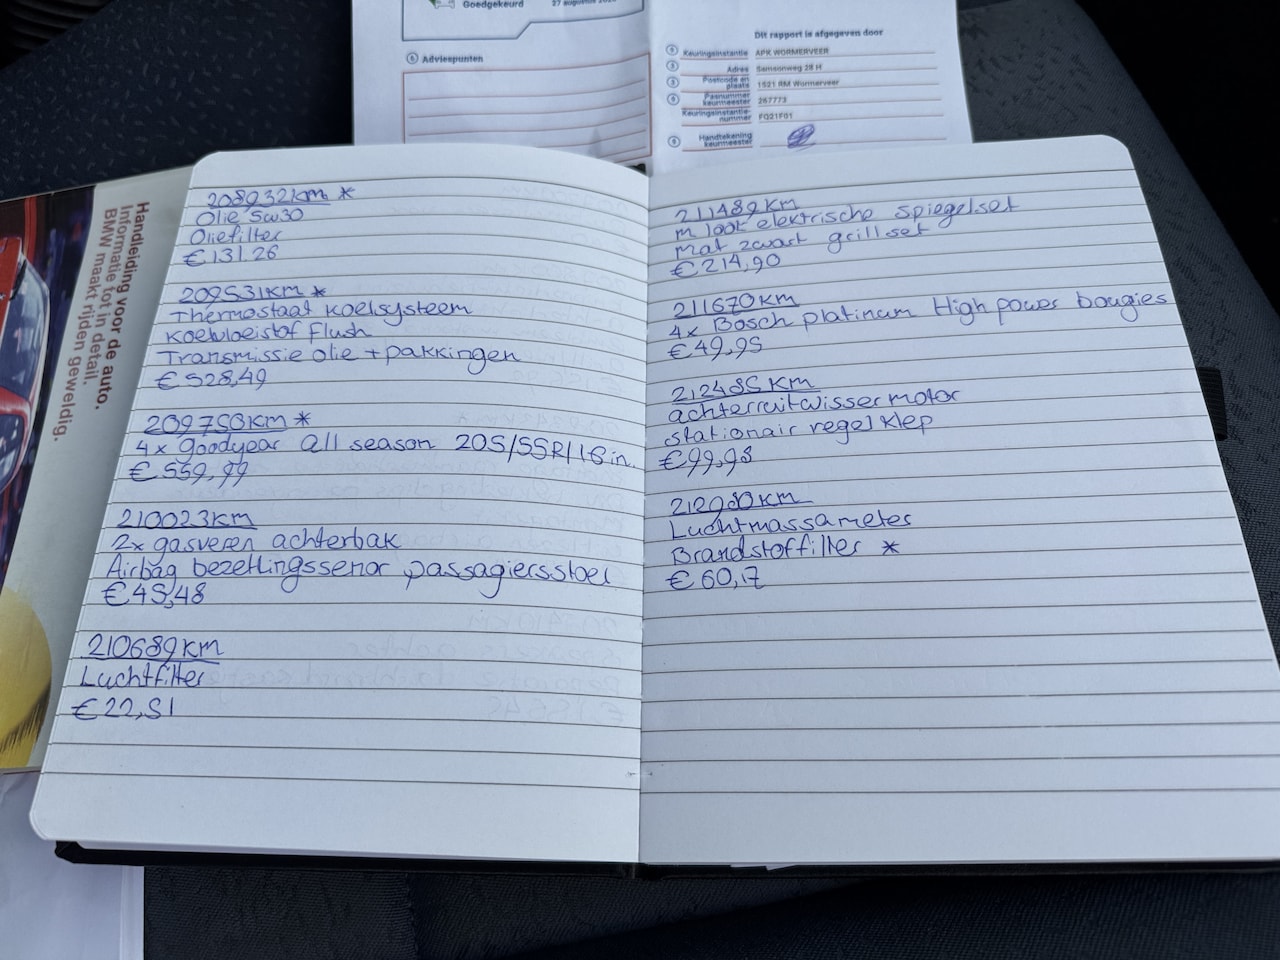 Goedgekeurd
27 augustus
Adviespunten
Dit rapport is afgegeven door
Keuringsinstantie APK WORMERVEER
Adres Samsonweg 28 H
Postcode en plaats 1521 RM Wormerveer
Pasnummer keurmeester 267773
Keuringsinstantie-nummer FQ21F01
Handtekening keurmeester
Handleiding voor de auto.
Informatie tot in detail.
BMW maakt rijden geweldig.
208932km *
Olie 5w30
Oliefilter
€131.26
209531km *
Thermostaat koelsysteem
koelvloeistof flush
Transmissie olie + pakkingen
€528,49
209750km *
4x goodyear all season 205/55R/16in.
€559,99
210023km
2x gasveren achterbak
Airbag bezettingssensor passagiersstoel
€45,48
210689km
Luchtfilter
€22,51
211489km
m look elektrische spiegelset
mat zwart grillset
€214,90
211670km
4x Bosch platinum High power bougies
€49,95
212485km
achterruitwissermotor
stationair regelklep
€99,98
212980km
Luchtmassameter
Brandstoffilter *
€60,17